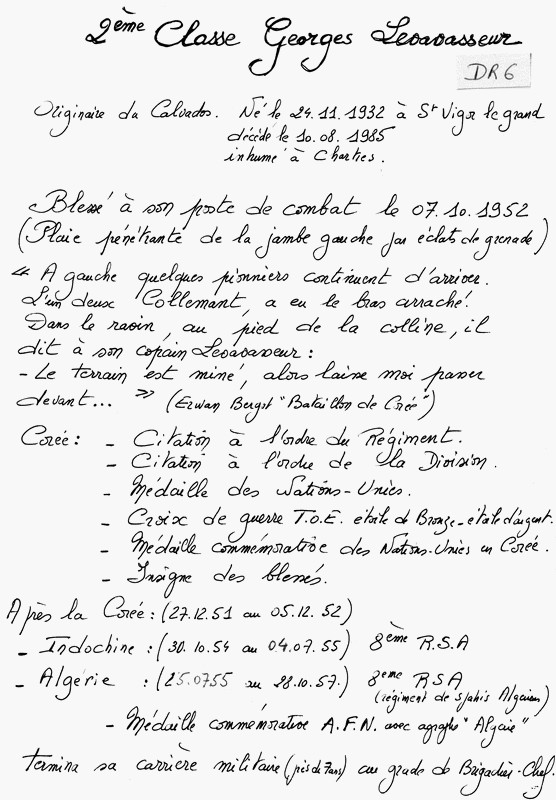 2ème Classe Georges Levavasseur
DR6
Originaire du Calvados. Né le 24.11.1932 à St Vigor le grand
décédé le 10.08.1985
inhumé à Chartres.
Blessé à son poste de combat le 07.10.1952
(Plaie pénétrante de la jambe gauche par éclats de grenade)
" A gauche quelques pionniers continuent d'arriver.
L'un deux Collemant, a eu le bras arraché.
Dans le ravin, au pied de la colline, il
dit à son copain Levavasseur :
- Le terrain est miné, alors laisse moi passer
devant... " (Erwan Bergot "Bataillon de Corée")
Corée : - Citation à l'ordre du Régiment.
- Citation à l'ordre de la Division.
- Médaille des Nations-Unies.
- Croix de guerre T.O.E. étoile de Bronze - étoile d'argent.
- Médaille commémorative des Nations-Unies en Corée.
- Insigne des blessés.
Après la Corée : (27.12.51 au 05.12.52)
- Indochine : (30.10.54 au 04.07.55) 8ème R.S.A
- Algérie : (25.0755 au 28.10.57.) 8eme RSA
(régiment de spahis Algeriens)
- Médaille commémorative A.F.N. avec agraphe "Algérie"
Termina sa carrière militaire (près de 7ans) au grade de Brigadier-Chef.